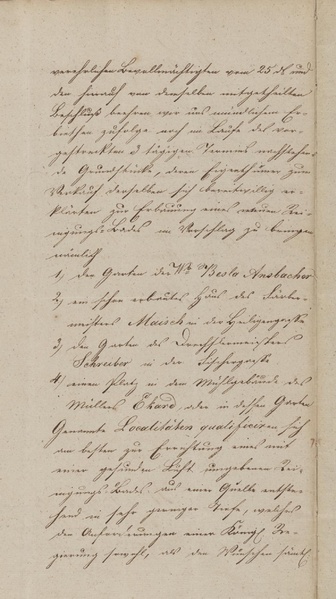 verehrlichen Bevollmächtigten vom 25 d. und
den hierauf von denselben mitgetheilten
Beschluß beehren wir uns mündlichem Er-
biethen zufolge noch im Laufe des vor-
gestreckten 3 tägigen Termins nachstehen-
de Grundstücke, deren Eigenthümer zum
Verkauf derselben sich bereitwillig er-
klärten zur Erbauung eines neuen Rei-
nigungs-Bades in Vorschlag zu bringen
nämlich
1) den Garten der Wb Besla Ansbacher
2) ein schon erbautes Haus des Färber-
meisters Maisch in der Heiligengasse
3) den Garten des Drechslermeisters
Schreiber in der Fischergasse
4) einen Platz in dem Mühlgebäude des
Müllers Ekard oder in dessen Garten
Genannte Localitäten qualificiren sich
am besten zur Errichtung eines mit
einer gesunden Luft umgebenen Rei-
nigungs-Bades aus einer Quelle entste-
hend in sehr geringer Tiefe, welches
den Anforderungen einer Königl Re-
gierung sowohl, als den Wünschen sämtl